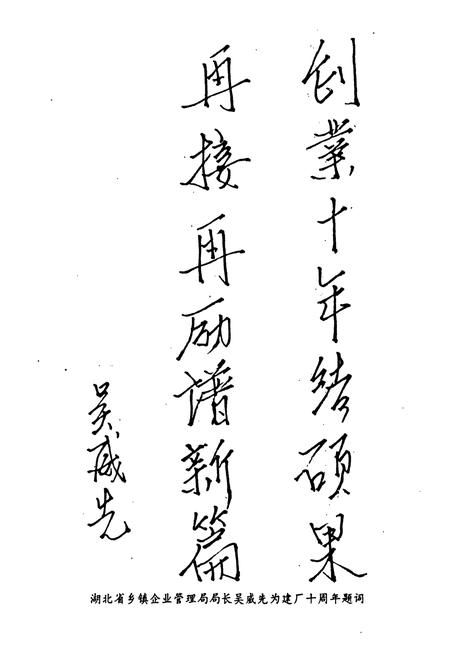 创業十年结硕果
再接再励谱新篇
吴威先
湖北省乡镇企业管理局局长吴威先为建厂十周年题词